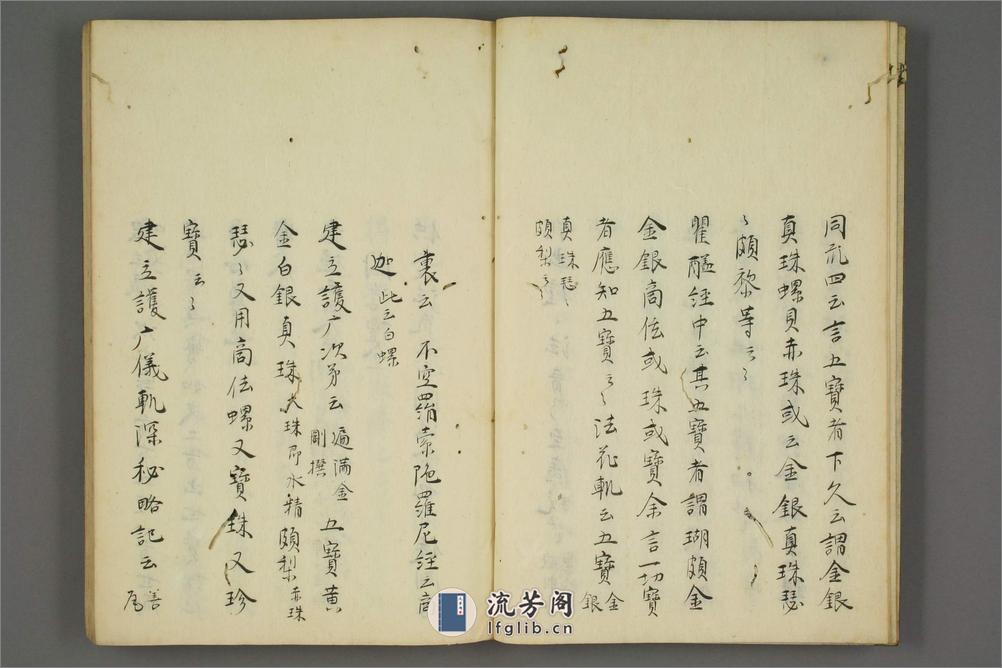 同疏四云言五寶者下久云謂金銀
真珠螺貝赤珠或云金銀真珠瑟
〻頗黎等云〻
瞿醯経中云其五寶者謂瑚頗金
金銀商佉或珠或寶余言一切寶
者應知五寶云〻法花軌云五寶金
銀
真珠瑟
頗梨云〻
裏云不空羂索陁羅尼経云商
迦此云白螺
建立護广次第云遍満金
剛撰
五寶黄
金白銀真珠火珠即水精頗梨赤珠
瑟〻又用商佉螺又寶珠又珍
寶云〻
建立護广儀軌深秘略記云善
流芳阁
lfglib.cn